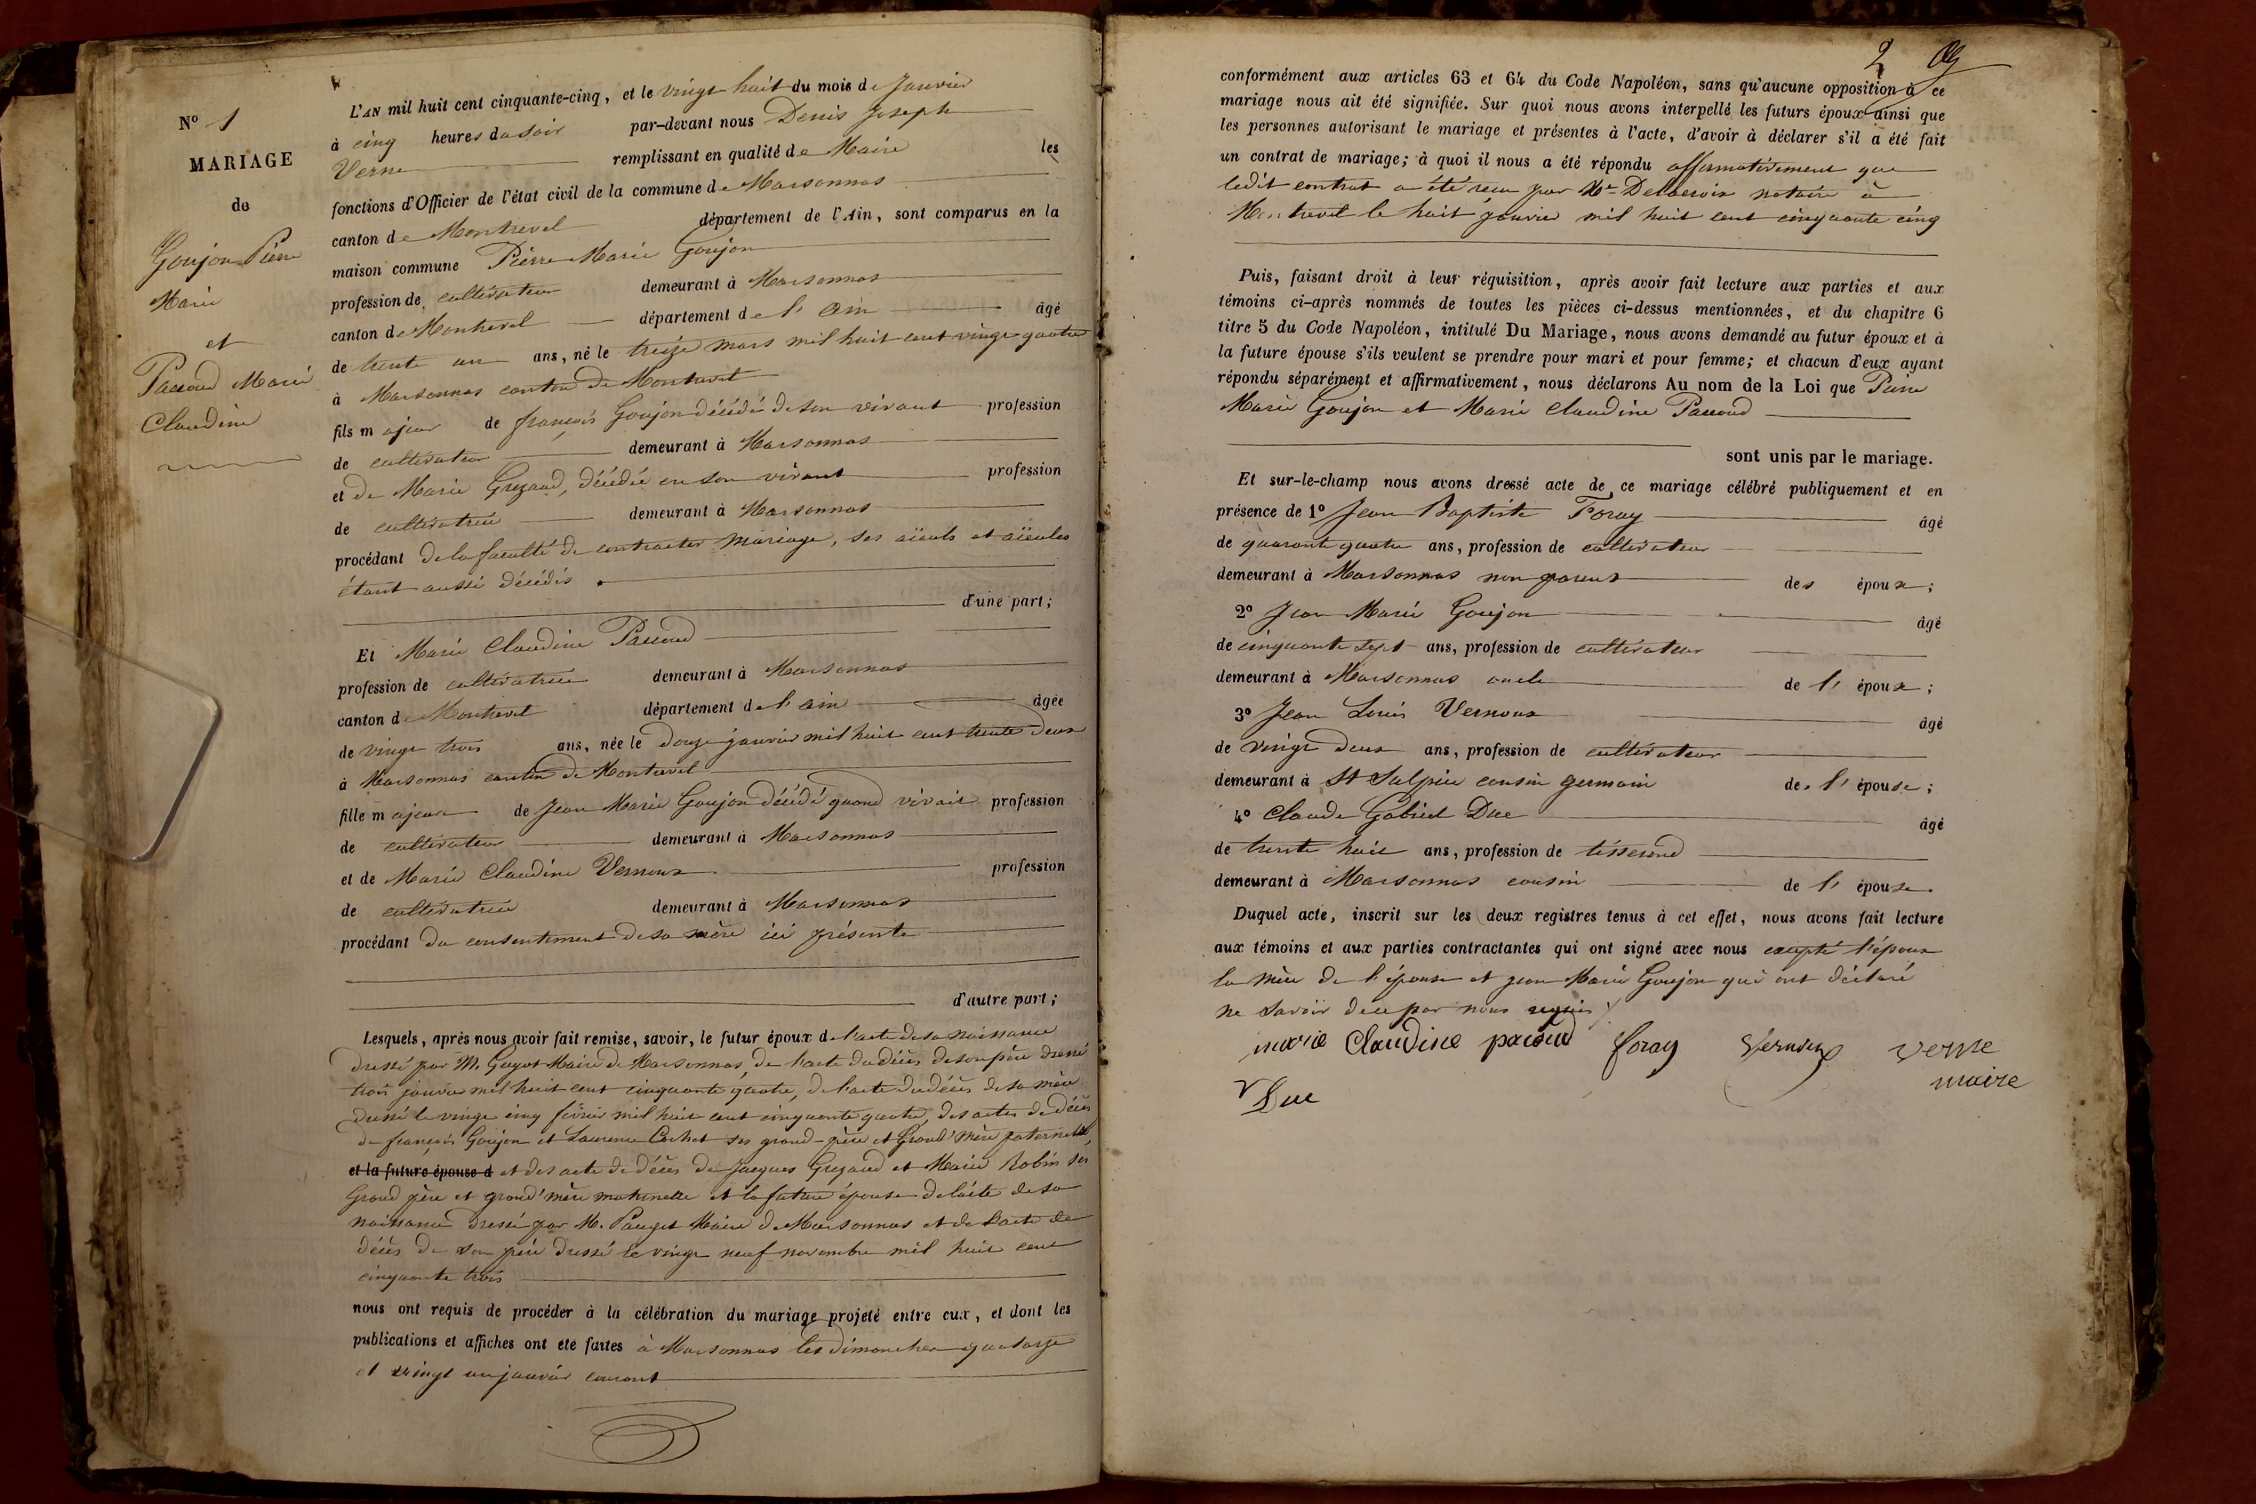 N° 1
MARIAGE
de
Goujon Pierre
Marie
et
Pacoud Marie
Claudine
L'AN mil huit cent cinquante-cinq, et le vingt huit du mois de Janvier
à cinq heures du soir par-devant nous Denis Joseph
Verne remplissant en qualité de Maire les
fonctions d'Officier de l'état civil de la commune de Marsonnas
canton de Montrevel département de l'Ain, sont comparus en la
maison commune Pierre Marie Goujon
profession de cultivateur demeurant à Marsonnas
canton de Montrevel département de l'Ain âgé
de trente un ans, né le treize mars mil huit cent vingt quatre
à Marsonnas canton de Montrevel
fils majeur de françois Goujon décédé de son vivant profession
de cultivateur demeurant à Marsonnas
et de Marie Grezaud, décédée en son vivant profession
de cultivatrice demeurant à Marsonnas
procédant de la faculté de contracter mariage, ses aïeuls et aïeules
étant aussi décédés.
d'une part;
Et Marie Claudine Pacoud
profession de cultivatrice demeurant à Marsonnas
canton de Montrevel département de l'ain âgée
de vingt trois ans, née le douze janvier mil huit cent trente deux
à Marsonnas canton de Montrevel
fille majeure de Jean Marie Goujon décédé quand vivait profession
de cultivateur demeurant à Marsonnas
et de Marie Claudine Vernoux profession
de cultivatrice demeurant à Marsonnas
procédant du consentement de sa mère ici présente
d'autre part;
Lesquels, après nous avoir fait remise, savoir, le futur époux de l'acte de sa naissance
dressé par M. Guyot Maire de Marsonnas, de l'acte du décès de son père dressé
trois janvier mil huit cent cinquante quatre, de l'acte du décès de sa mère
dressé le vingt cinq février mil huit cent cinquante quatre, des actes de décès
de françois Goujon et Laurence Cochet ses grand-père et Grand'mère paternelle,
et la future épouse d et des acte de décès de Jacques Grezaud et Marie Robin ses
Grand père et grand'mère maternelle et la future épouse de l'acte de sa
naissance dressé par M. Pauget Maire de Marsonnas et de l'acte de
décès de son père dressé le vingt neuf novembre mil huit cent
cinquante trois
nous ont requis de procéder à la célébration du mariage projeté entre eux, et dont les
publications et affiches ont été faites à Marsonnas les dimanches quatorze
et vingt un janvier courant
2
conformément aux articles 63 et 64 du Code Napoléon, sans qu'aucune opposition à ce
mariage nous ait été signifiée. Sur quoi nous avons interpellé les futurs époux ainsi que
les personnes autorisant le mariage et présentes à l'acte, d'avoir à déclarer s'il a été fait
un contrat de mariage; à quoi il nous a été répondu affirmativement que
ledit contrat a été reçu par Me Delacroix notaire à
Montrevel le huit janvier mil huit cent cinquante cinq
Puis, faisant droit à leur réquisition, après avoir fait lecture aux parties et aux
témoins ci-après nommés de toutes les pièces ci-dessus mentionnées, et du chapitre 6
titre 5 du Code Napoléon, intitulé Du Mariage, nous avons demandé au futur époux et à
la future épouse s'ils veulent se prendre pour mari et pour femme; et chacun d'eux ayant
répondu séparément et affirmativement, nous déclarons Au nom de la Loi que Pierre
Marie Goujon et Marie Claudine Pacoud
sont unis par le mariage.
Et sur-le-champ nous avons dressé acte de ce mariage célébré publiquement et en
présence de 1° Jean Baptiste Foray âgé
de quarante quatre ans, profession de cultivateur
demeurant à Marsonnas non parent des époux;
2° Jean Marie Goujon âgé
de cinquante sept ans, profession de cultivateur
demeurant à Marsonnas oncle de l'époux;
3° Jean Louis Vernoux âgé
de vingt deux ans, profession de cultivateur
demeurant à St Sulpice cousin germain de l'épouse;
4° Claude Gabriel Duc âgé
de trente huit ans, profession de tisserand
demeurant à Marsonnas cousin de l'épouse.
Duquel acte, inscrit sur les deux registres tenus à cet effet, nous avons fait lecture
aux témoins et aux parties contractantes qui ont signé avec nous excepté l'époux
la mère de l'épouse et jean Marie Goujon qui ont déclaré
ne savoir de ce par nous requis
marie Claudine pacoud foray Vernoux verne
maire
Duc